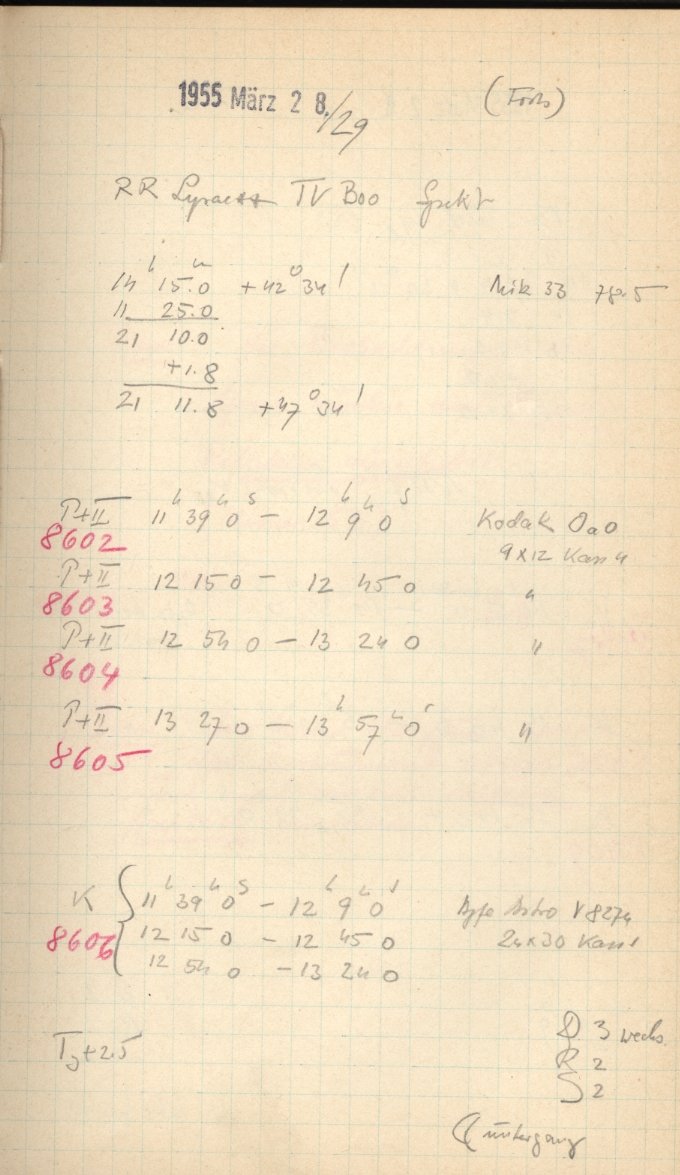 1955 März 28./29 (Forts)
RR Lyrae TV Boo Spektr
14h 15.0m +42° 34'
Mik 33 78.5
11 25.0
21 10.0
+1.8
21 11.8 +47° 34'
P+II 11h 39m 0s – 12h 9m 0s Kodak OaO
8602 9x12 Kass 4
P+II 12 15 0 – 12 45 0 "
8603
P+II 12 54 0 – 13 24 0 "
8604
P+II 13 27 0 – 13h 57m 0s "
8605
K { 11h 39m 0s – 12h 9m 0s Agfa Astro V8274
8606 12 15 0 – 12 45 0 24x30 Kass 1
12 54 0 – 13 24 0
+2.5
D 3 wechs.
R 2
S 2
☾ untergang